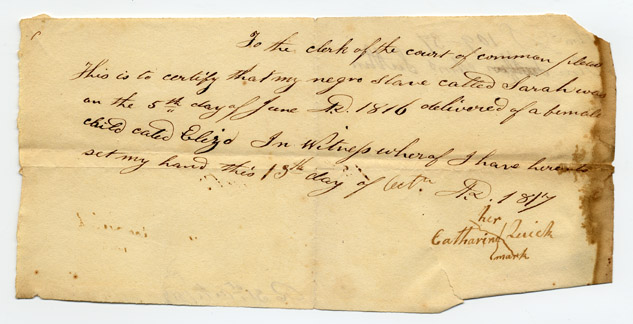 To the clerk of the court of common pleas
This is to certify that my negro slave called Sarah was
on the 5th day of June AD. 1816 delivered of a female
child caled Eliza In Witness wherof I have hereunto
set my hand this 13th day of Octr. AD. 1817
her
Catharine Quick
mark